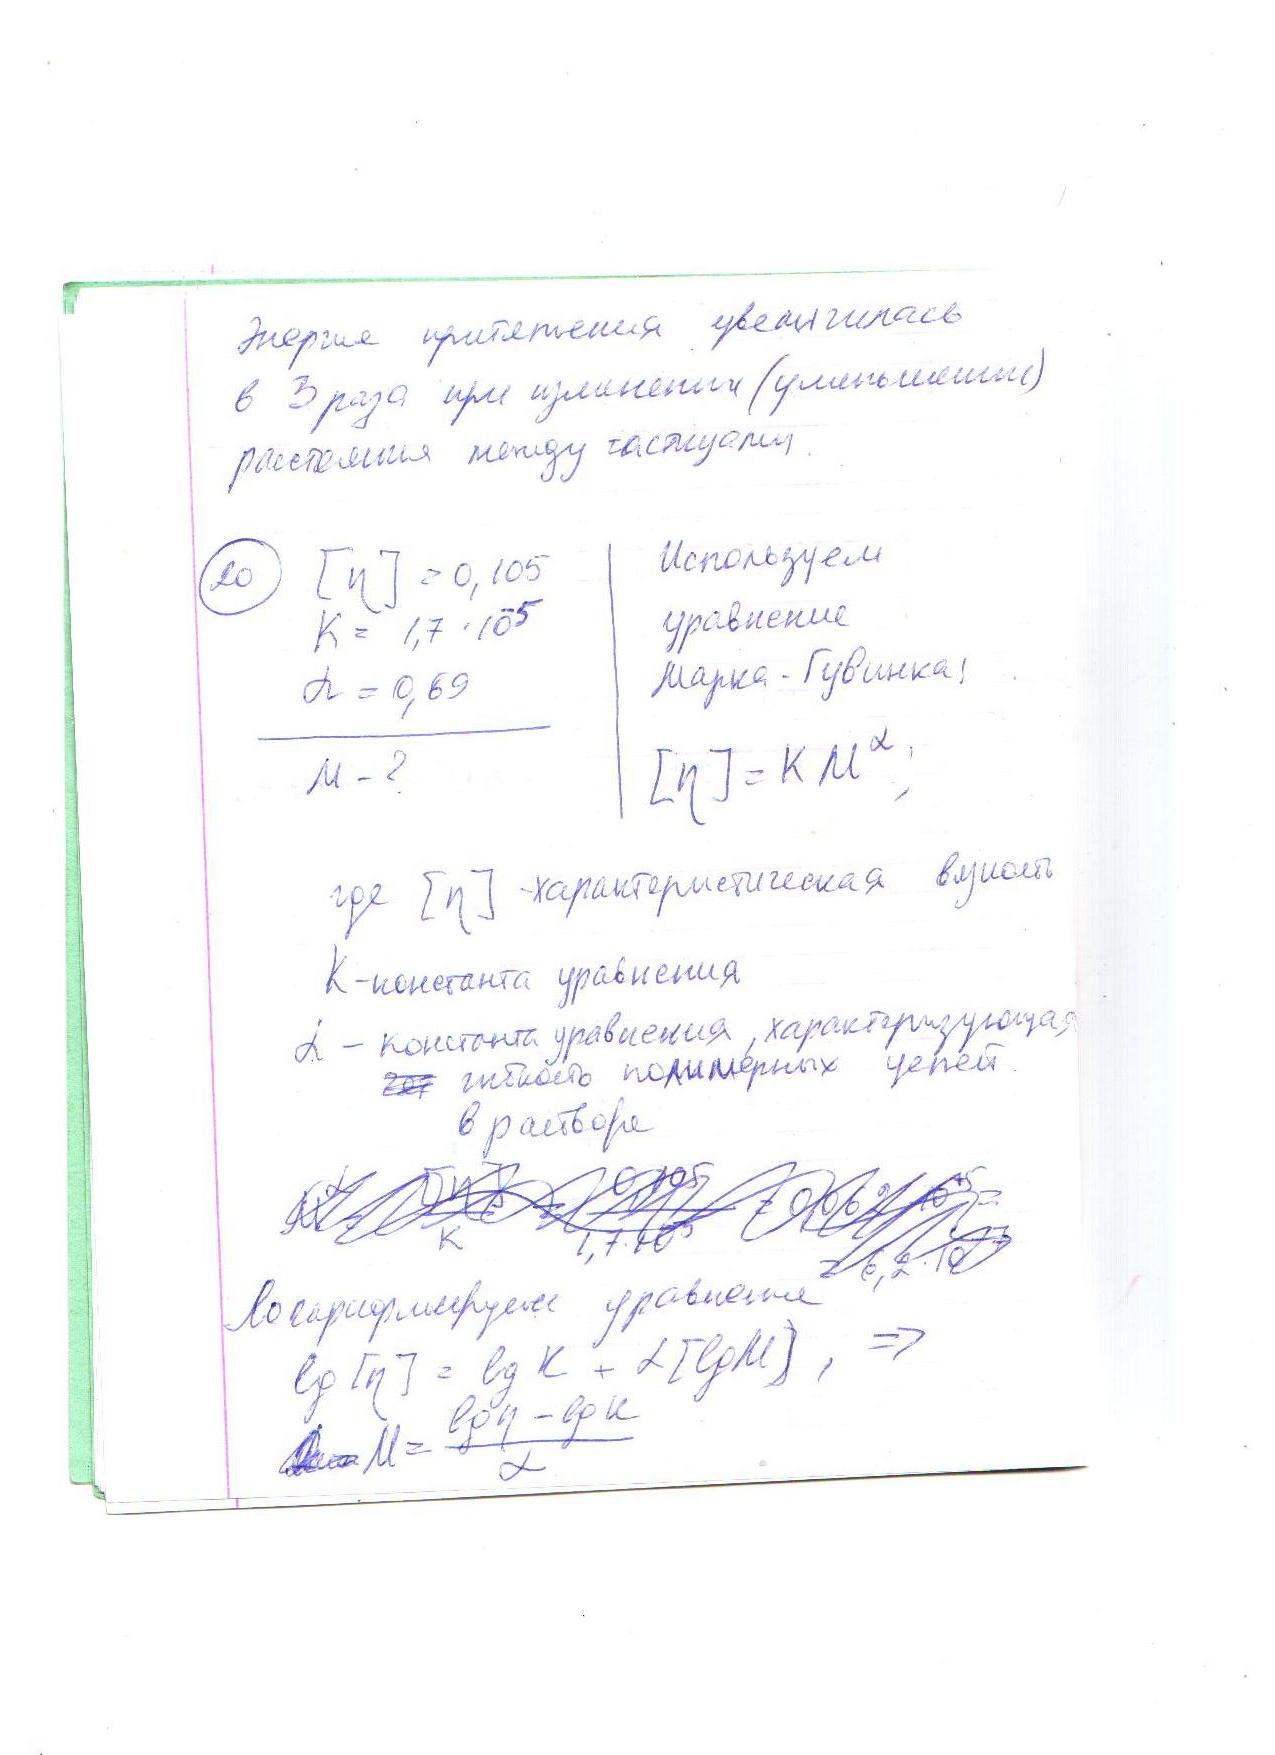 Энергия притяжения увеличилась
в 3 раза при изменении (уменьшении)
расстояния между частицами.
20
[η] = 0,105
K = 1,7 · 10⁻⁵
α = 0,69
M - ?
Используем
уравнение
Марка-Гувинка:
[η] = K M^α;
где [η] - характеристическая вязкость
K - константа уравнения
α - константа уравнения, характеризующая
гибкость полимерных цепей
в растворе
[η] / K = 0,105 / 1,7·10⁻⁵
= 6,2·10
Логарифмируем уравнение
lg [η] = lg K + α [lg M], =>
M = (lg η - lg K) / α